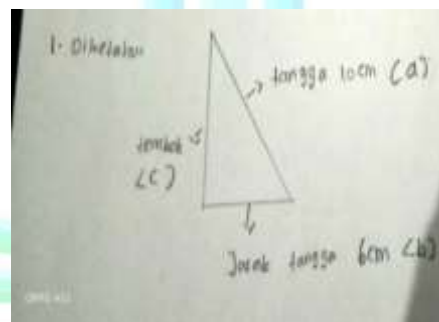 1. Diketahui
tangga 10cm (a)
tembok
(c)
Jarak tangga 6cm (b)